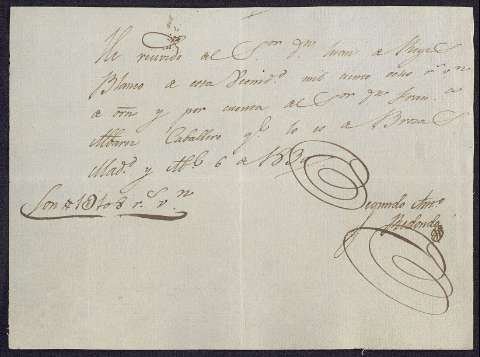 He recivido del S.or dn. Juan de Reyes
Blanco de esta Vecind.d mil ciento ocho r.s v.n
de orn y por cuenta del S.or dn. Joan. de
Albarez Caballero q.e lo es de Brozas
Mad.d y Ab.l 6 de
Son 1108 r.s v.n
Segundo Ant.o
Redondo